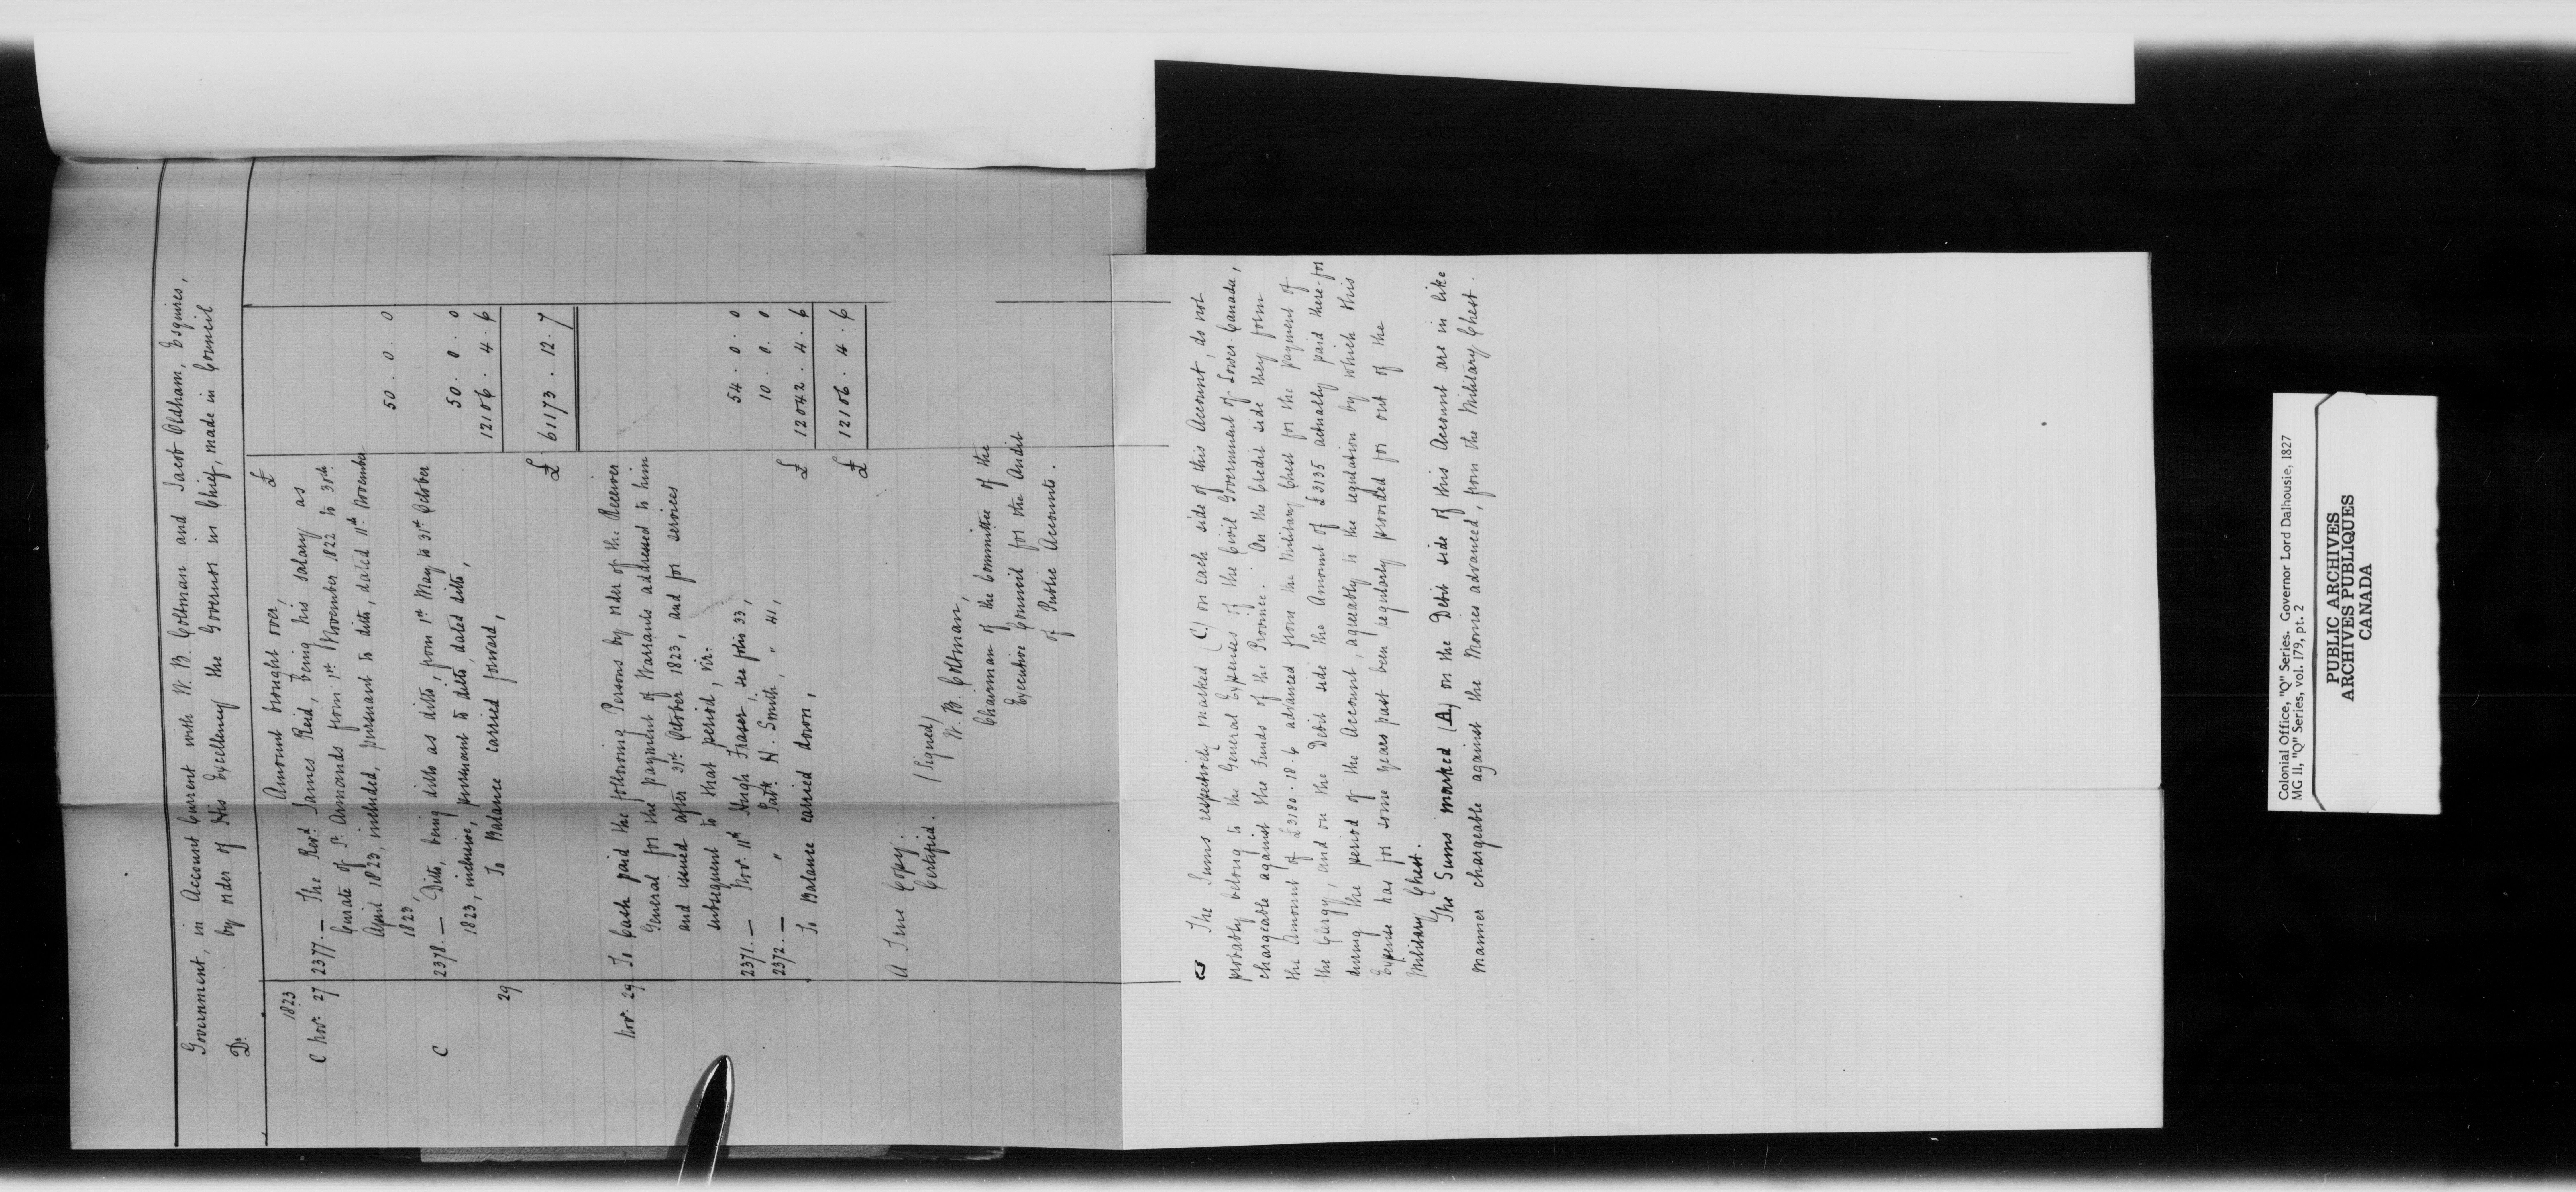 Government, in Account Current with W. B. Coltman and Jacob Oldham, Esquires,
by order of His Excellency the Governor in Chief, made in Council
Dr.
Amount brought over, £
1823
C Novr. 27 2377. — The Revd. James Reid, being his salary as
Curate of St. Armands from 1st November 1822 to 30th
April 1823, included, pursuant to ditto, dated 11th November
1823, 50 . 0 . 0
C 2378. — Ditto, being ditto as ditto, from 1st May to 31st October
1823, inclusive, pursuant to ditto, dated ditto, 50 . 0 . 0
29 To Balance carried forward, 12106 . 4 . 6
£ 61173 . 12 . 7
Novr. 29 To Cash paid the following Persons by order of the Receiver
General for the payment of Warrants addressed to him
and issued after 31st October 1823, and for services
subsequent to that period, viz.
2371. — Novr. 11th Hugh Fraser, see folio 33, 54 . 0 . 0
2372. — " " Patk. H. Smith, " 41, 10 . 0 . 0
To Balance carried down, £ 12042 . 4 . 6
£ 12106 . 4 . 6
A True Copy.
Certified.
(Signed)
W. B. Coltman,
Chairman of the Committee of the
Executive Council for the Audit
of Public Accounts.
The Sums respectively marked (C) on each side of this Account, do not
probably belong to the General Expenses of the Civil Government of Lower-Canada,
chargeable against the Funds of the Province. On the Credit side they form
the Amount of £3180 . 18 . 6 advanced from the Military Chest for the payment of
the Clergy, and on the Debit side the Amount of £3135 actually paid there-for
during the period of the Account, agreeably to the regulation by which this
Expense has for some years past been regularly provided for out of the
Military Chest.
The Sums marked (A) on the Debit side of this Account are in like
manner chargeable against the Monies advanced, from the Military Chest.
Colonial Office, "Q" Series. Governor Lord Dalhousie, 1827
MG 11, "Q" Series, vol. 179, pt. 2
PUBLIC ARCHIVES
ARCHIVES PUBLIQUES
CANADA